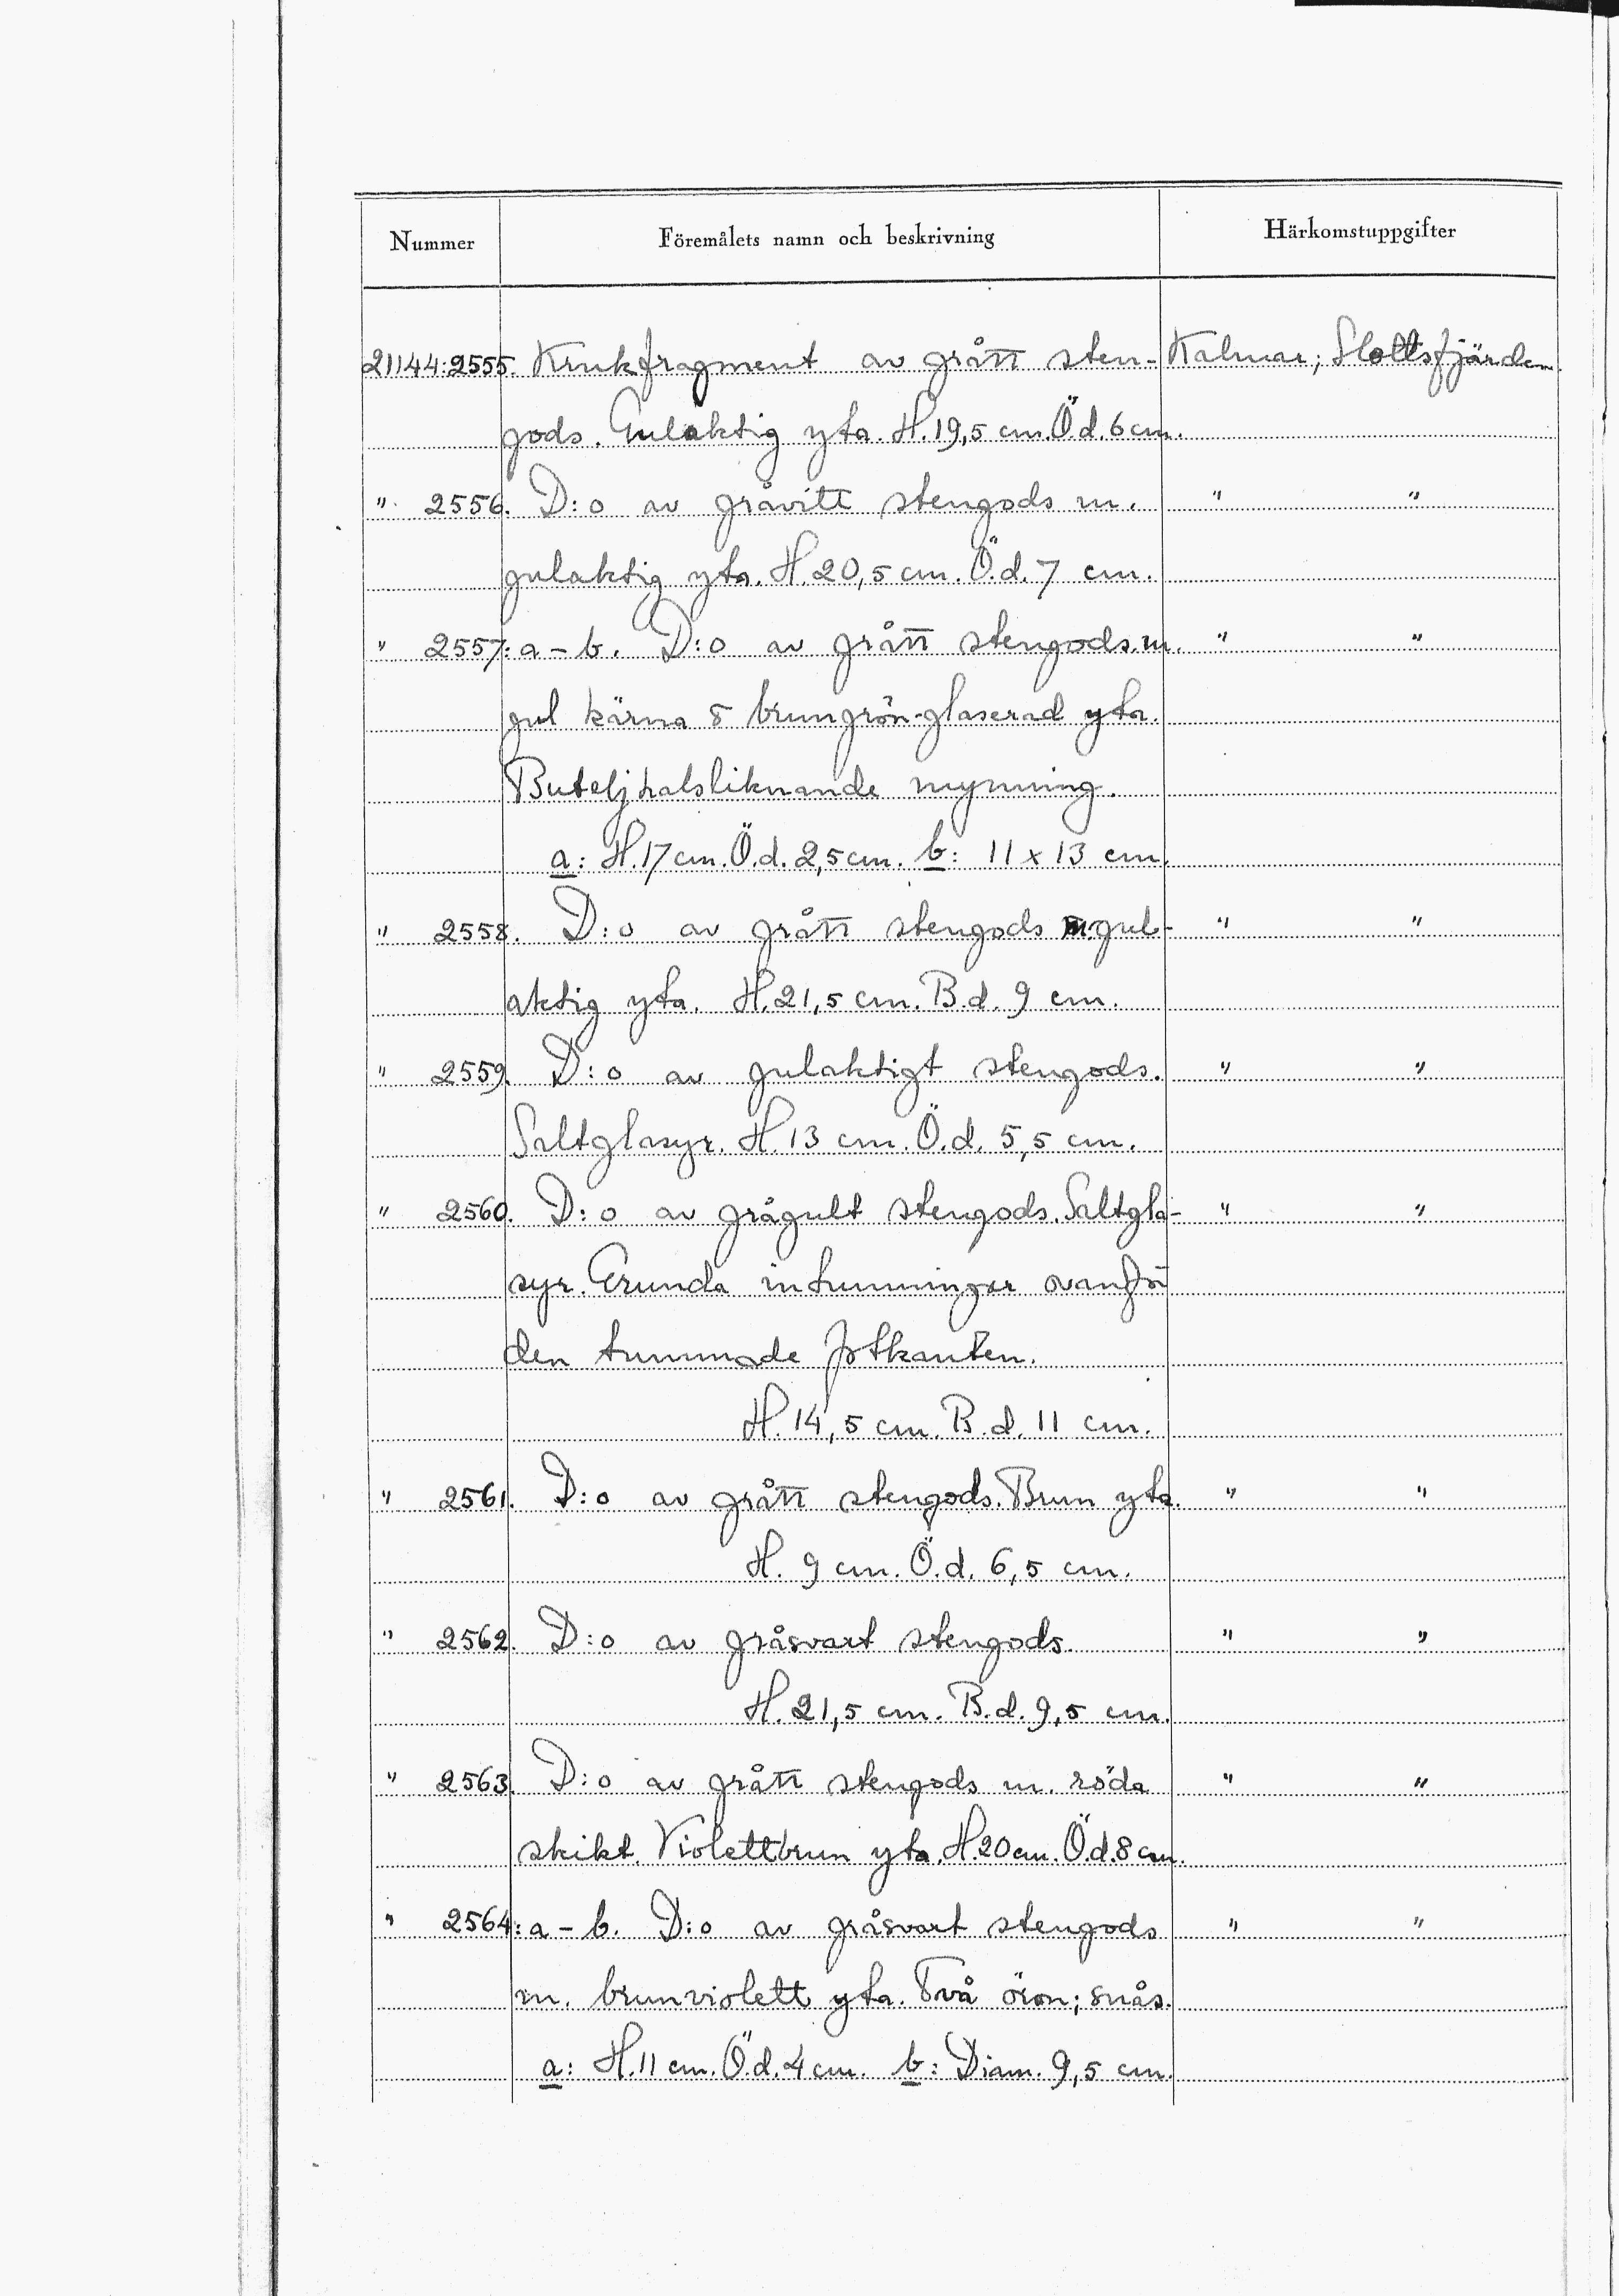 Nummer Föremålets namn och beskrivning Härkomstuppgifter
21144:2555. Krukfragment av grått sten- Kalmar; Slottsfjärden.
gods. Gulaktig yta. H. 19,5 cm. Ö.d. 6 cm.
" 2556. D:o av gråvitt stengods m. " "
gulaktig yta. H. 20,5 cm. Ö.d. 7 cm.
" 2557: a-b. D:o av grått stengods m. " "
gul kärna & brungrön-glaserad yta.
Buteljhalsliknande mynning.
a: H. 17 cm. Ö.d. 2,5 cm. b: 11 x 13 cm.
" 2558. D:o av grått stengods m. gul- " "
aktig yta. H. 21,5 cm. B.d. 9 cm.
" 2559. D:o av gulaktigt stengods. " "
Saltglasyr. H. 13 cm. Ö.d. 5,5 cm.
" 2560. D:o av grågult stengods. Saltgla- " "
syr. Grunda intumningar ovanför
den tummade fotkanten.
H. 14,5 cm. B.d. 11 cm.
" 2561. D:o av grått stengods. Brun yta. " "
H. 9 cm. Ö.d. 6,5 cm.
" 2562. D:o av gråsvart stengods. " "
H. 21,5 cm. B.d. 9,5 cm.
" 2563. D:o av grått stengods m. röda " "
skikt. Violettbrun yta. H. 20 cm. Ö.d. 8 cm.
" 2564: a-b. D:o av gråsvart stengods " "
m. brunviolett yta. Två öron; snås.
a: H. 11 cm. Ö.d. 4 cm. b: Diam. 9,5 cm.